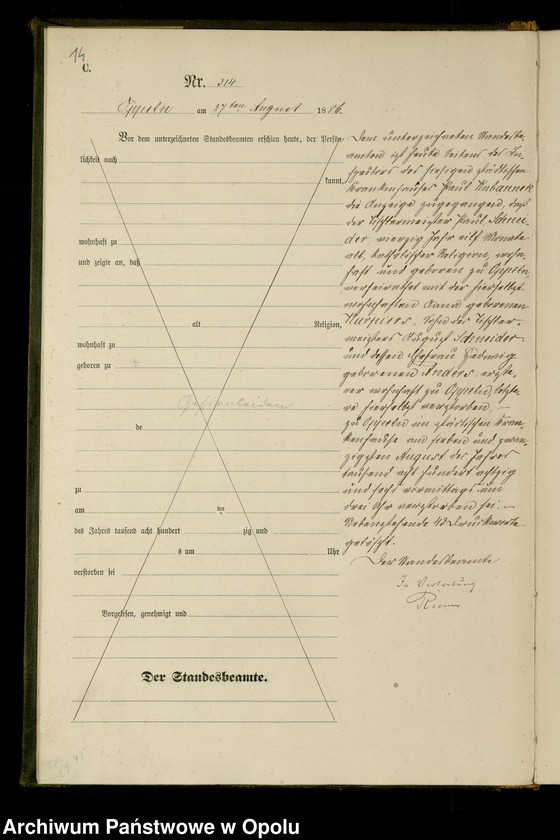 14
C.
Nr. 314
Oppeln am 27ten August 1886.
Vor dem unterzeichneten Standesbeamten erschien heute, der Persön-
lichkeit nach
kannt,
wohnhaft zu
und zeigte an, daß
alt Religion,
wohnhaft zu
geboren zu
Gehirnleiden
de
zu
am ten
des Jahres tausend acht hundert zig und
s um Uhr
verstorben sei
Vorgelesen, genehmigt und
Der Standesbeamte.
Dem unterzeichneten Standesbe-
amten ist heute Seitens des In-
spektors des hiesigen städtischen
Krankenhauses Paul
die Anzeige zugegangen, daß
der Tischlermeister Paul Schnei-
der, vierzig Jahr elf Monate
alt, katholischer Religion, wohn-
haft und geboren zu Oppeln,
verheirathet mit der hierselbst
wohnhaften geborenen
Kurpiers, Sohn des Tischler-
meisters August Schneider
und dessen Ehefrau Hedwig
geborenen Anders, erste-
rer wohnhaft zu Oppeln, letzte-
re hierselbst verstorben, –
zu Oppeln im städtischen Kran-
kenhause am sieben und zwan-
zigsten August des Jahres
tausend acht hundert achtzig
und sechs vormittags um
drei Uhr verstorben sei. –
Nebenstehende 43 Druckworte
gelöscht.
Der Standesbeamte
In Vertretung
Archiwum Państwowe w Opolu